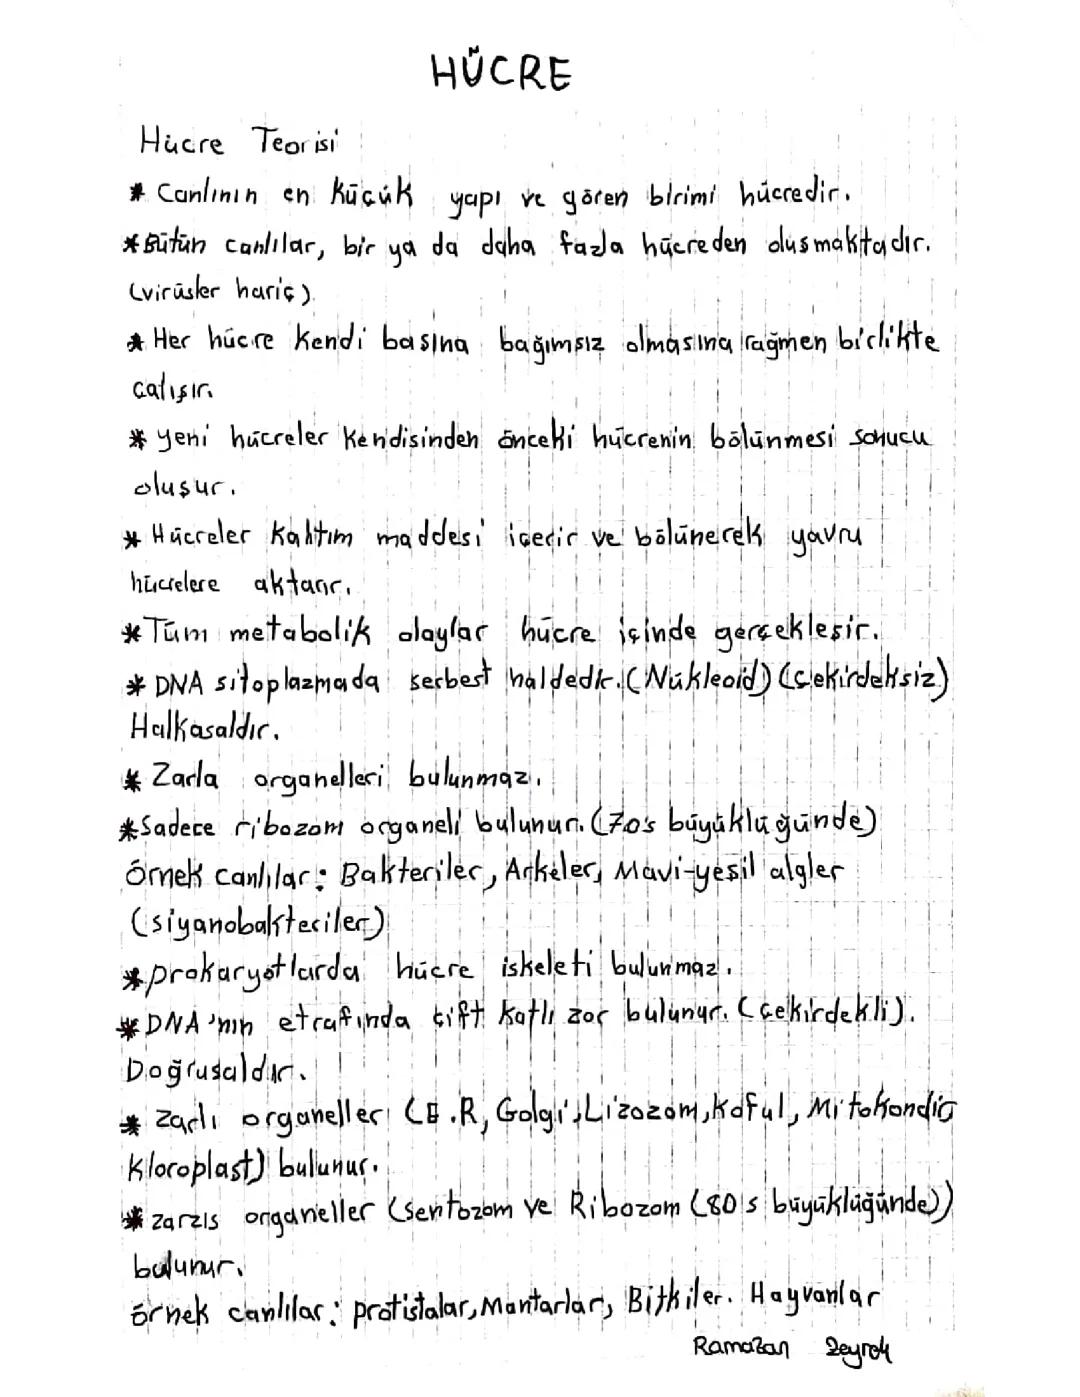 HÜCRE
Hücre Teorisi
* Canlının en küçük yapı ve gören birimi hücredir.
* Bütün canlılar, bir ya da daha fazla hücreden olusmaktadır.
(virüsler hariç)
* Her hücre kendi basına bağımsız olmasına rağmen birlikte
çalışır.
* yeni hücreler kendisinden önceki hücrenin bölünmesi sonucu
oluşur.
* Hücreler kalıtım maddesi içerir ve bölünerek yavru
hücrelere aktarır.
* Tüm metabolik olaylar hücre içinde gerçekleşir.
* DNA sitoplazmada serbest haldedir. (Nükleoid) (çekirdeksiz)
Halkasaldır.
* Zarla organelleri bulunmaz.
* Sadece ribozom organeli bulunur. (70's büyüklüğünde)
Örnek canlılar: Bakteriler, Arkeler, Mavi-yeşil algler
(siyanobakteriler)
* prokaryotlarda hücre iskeleti bulunmaz.
* DNA'nın etrafında çift katlı zar bulunur. (çekirdekli).
Doğrusaldır.
* zarlı organeller (E.R, Golgi, Lizozom, Koful, Mitokondri
Kloroplast) bulunur.
* zarzıs organeller (sentozom ve Ribozom (80's büyüklüğünde))
bulunur.
örnek canlılar: protistalar, Mantarlar, Bitkiler. Hayvanlar
Ramazan Zeyrek